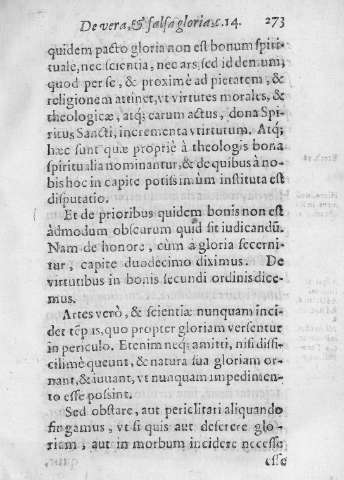 De vera, & falsa gloria, c. 14. 273
quidem pacto gloria non est bonum spiri-
tuale, nec scientia, nec ars, sed id denum;
quod per se, & proximè ad pietatem, &
religionem attinet, vt virtutes morales, &
theologicæ, atq; earum actus, dona Spi-
ritus Sancti, incrementa virtutum. Atq;
hæc sunt quæ propriè à theologis bona
spiritualia nominantur, & de quibus à no-
bis hoc in capite potissimùm instituta est
disputatio.
Et de prioribus quidem bonis non est
àdmodum obscurum quid sit iudicandũ.
Nam de honore, cùm à gloria secerni-
tur, capite duodecimo diximus. De
virtutibus in bonis secundi ordinis dice-
mus.
Artes verò, & scientiæ nunquam inci-
det tẽpus, quo propter gloriam versentur
in periculo. Etenim neq; amitti, nisi diffi-
cilimè queunt, & natura sua gloriam or-
nant, & iuuant, vt nunquam impedimen-
to esse possint.
Sed obstare, aut periclitari aliquando
fingamus, vt si quis aut deserere glo-
riam, aut in morbum incidere necesse
esse